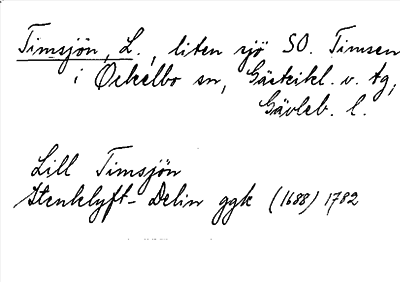 Timsjön, L., liten sjö SO. Timsen
i Ockelbo sn, Gästrikl. v. tg,
Gävleb. l.
Lill Timsjön
Stenklyft- Delin ggk (1688) 1782